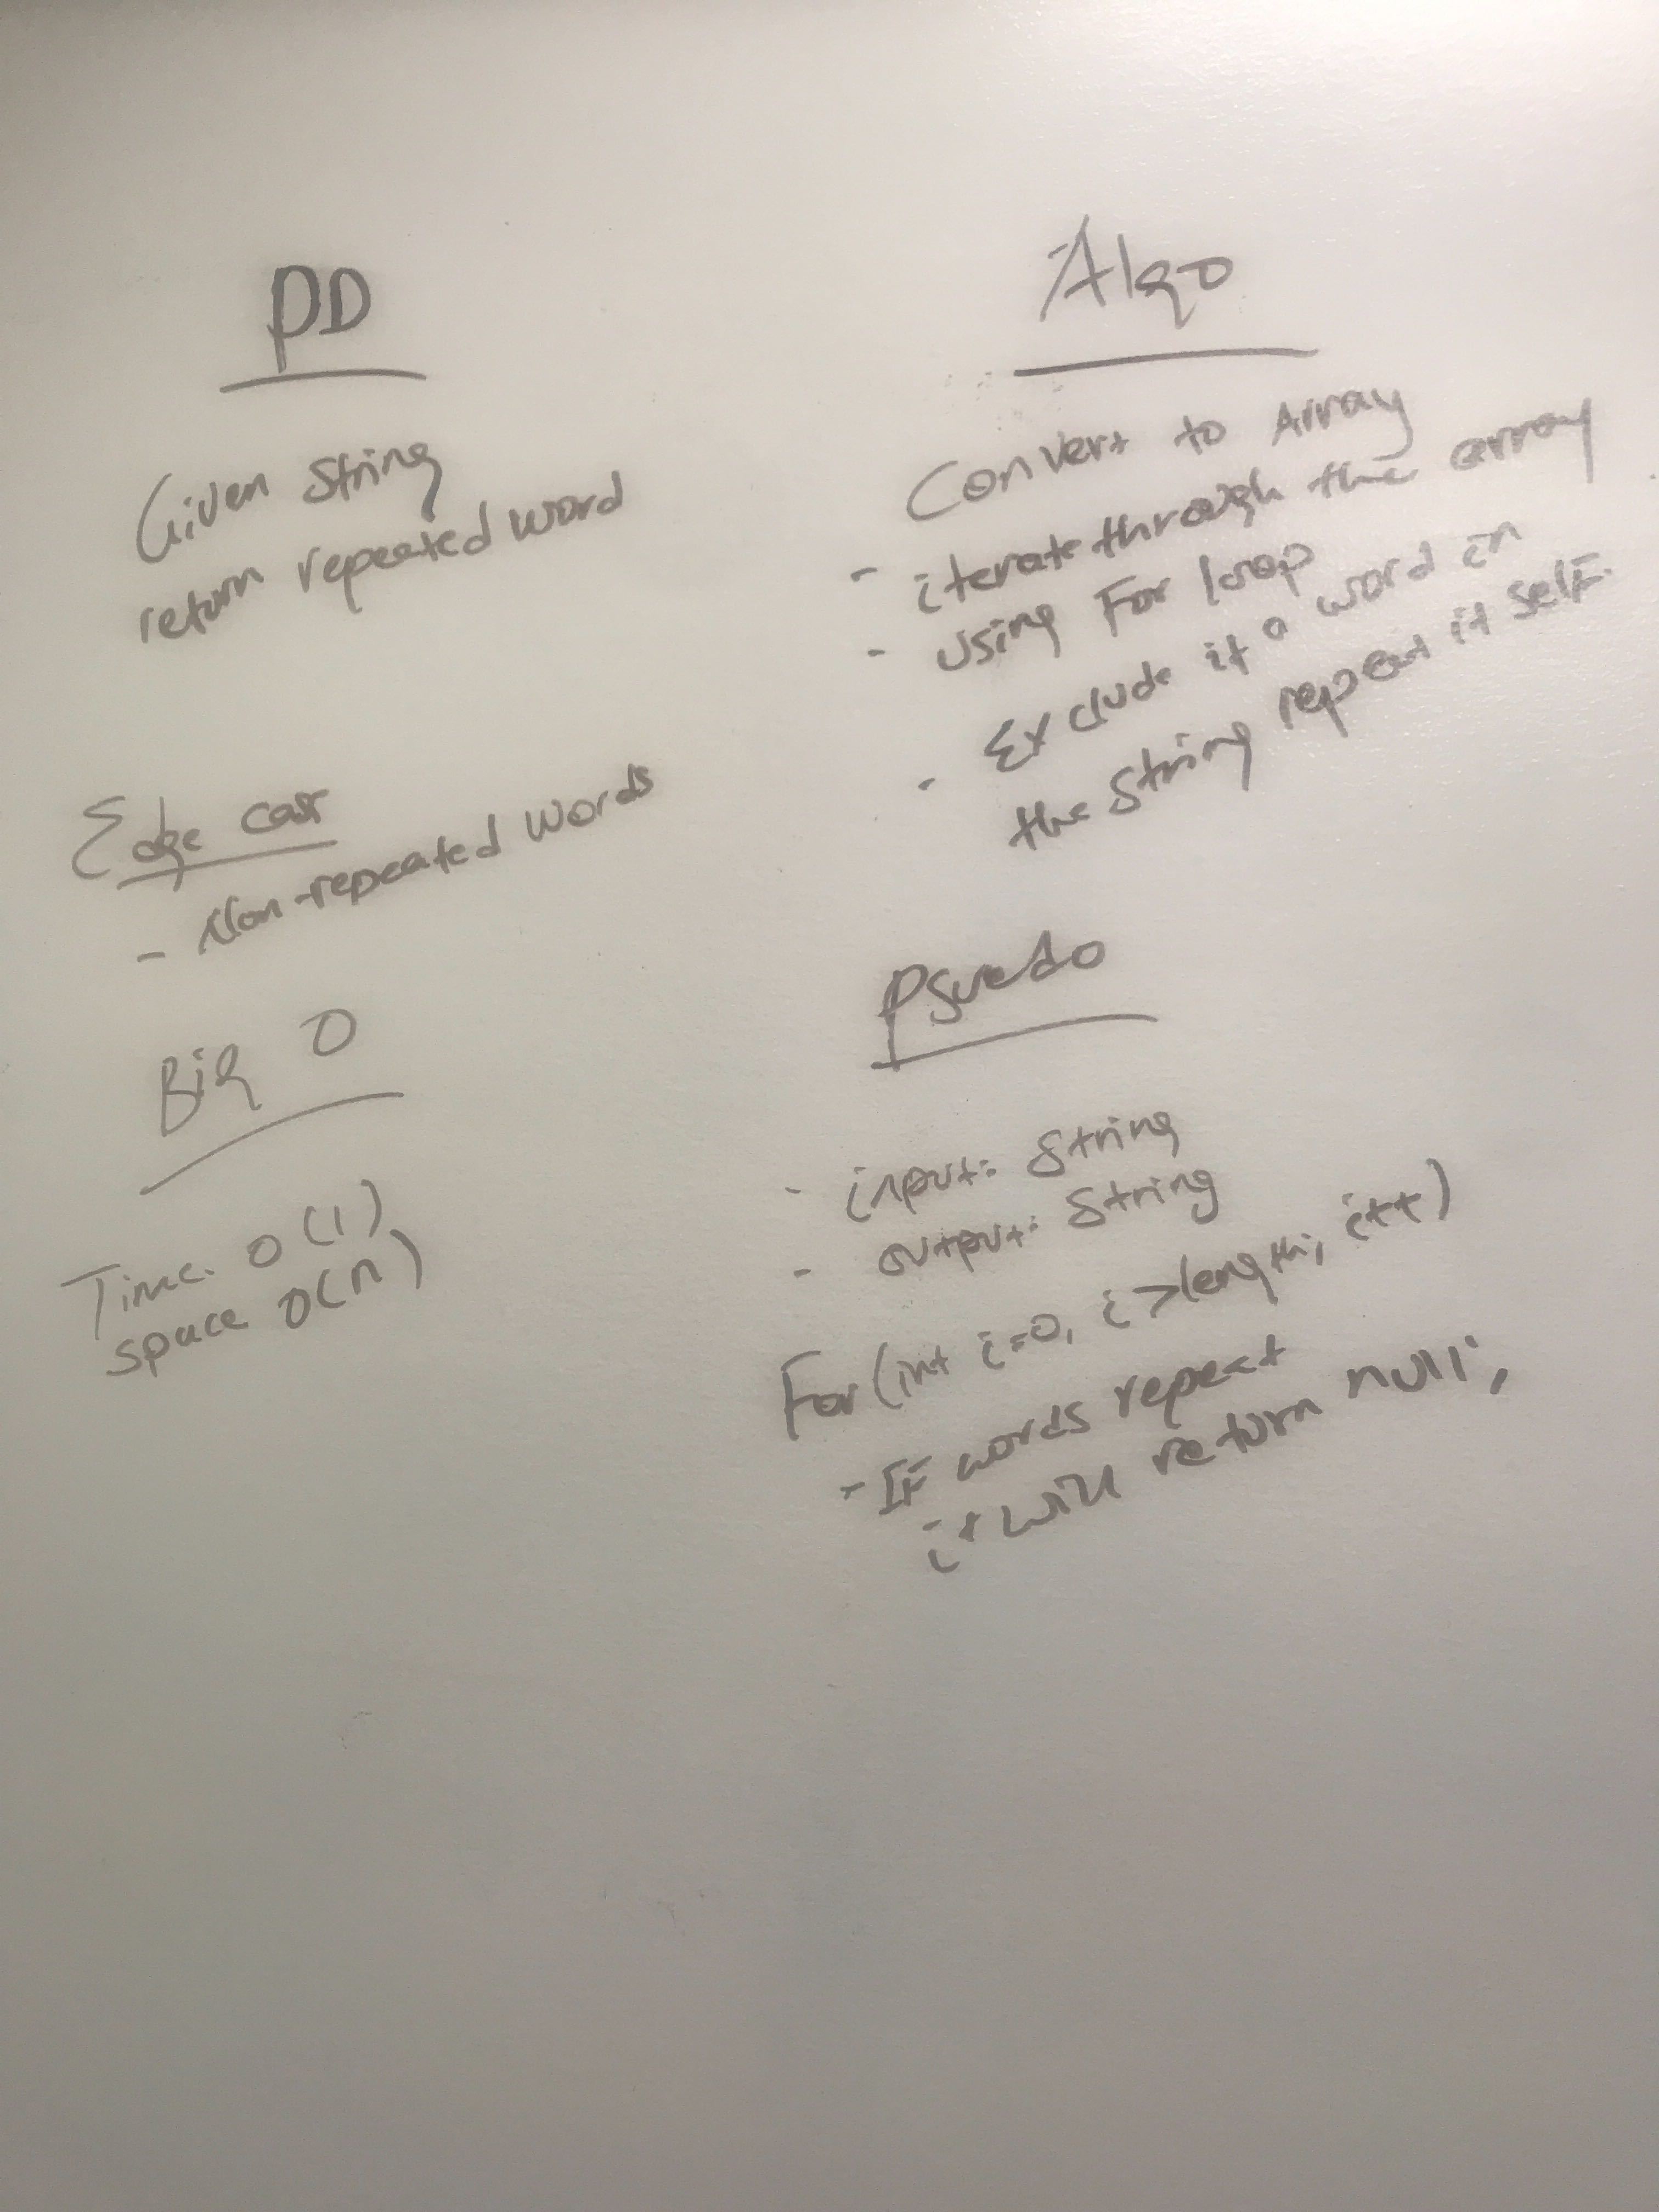 PD
Given String
return repeated word
Edge case
- Non-repeated words
Big O
Time. O(1)
space O(n)
Algo
Convert to Array
- iterate through the array
- Using For loop
- Exclude it a word in
the String repeat it self.
Psuedo
- input: String
- output: String
For(int i=0, i>length; i++)
- IF words repeat
it will return null;